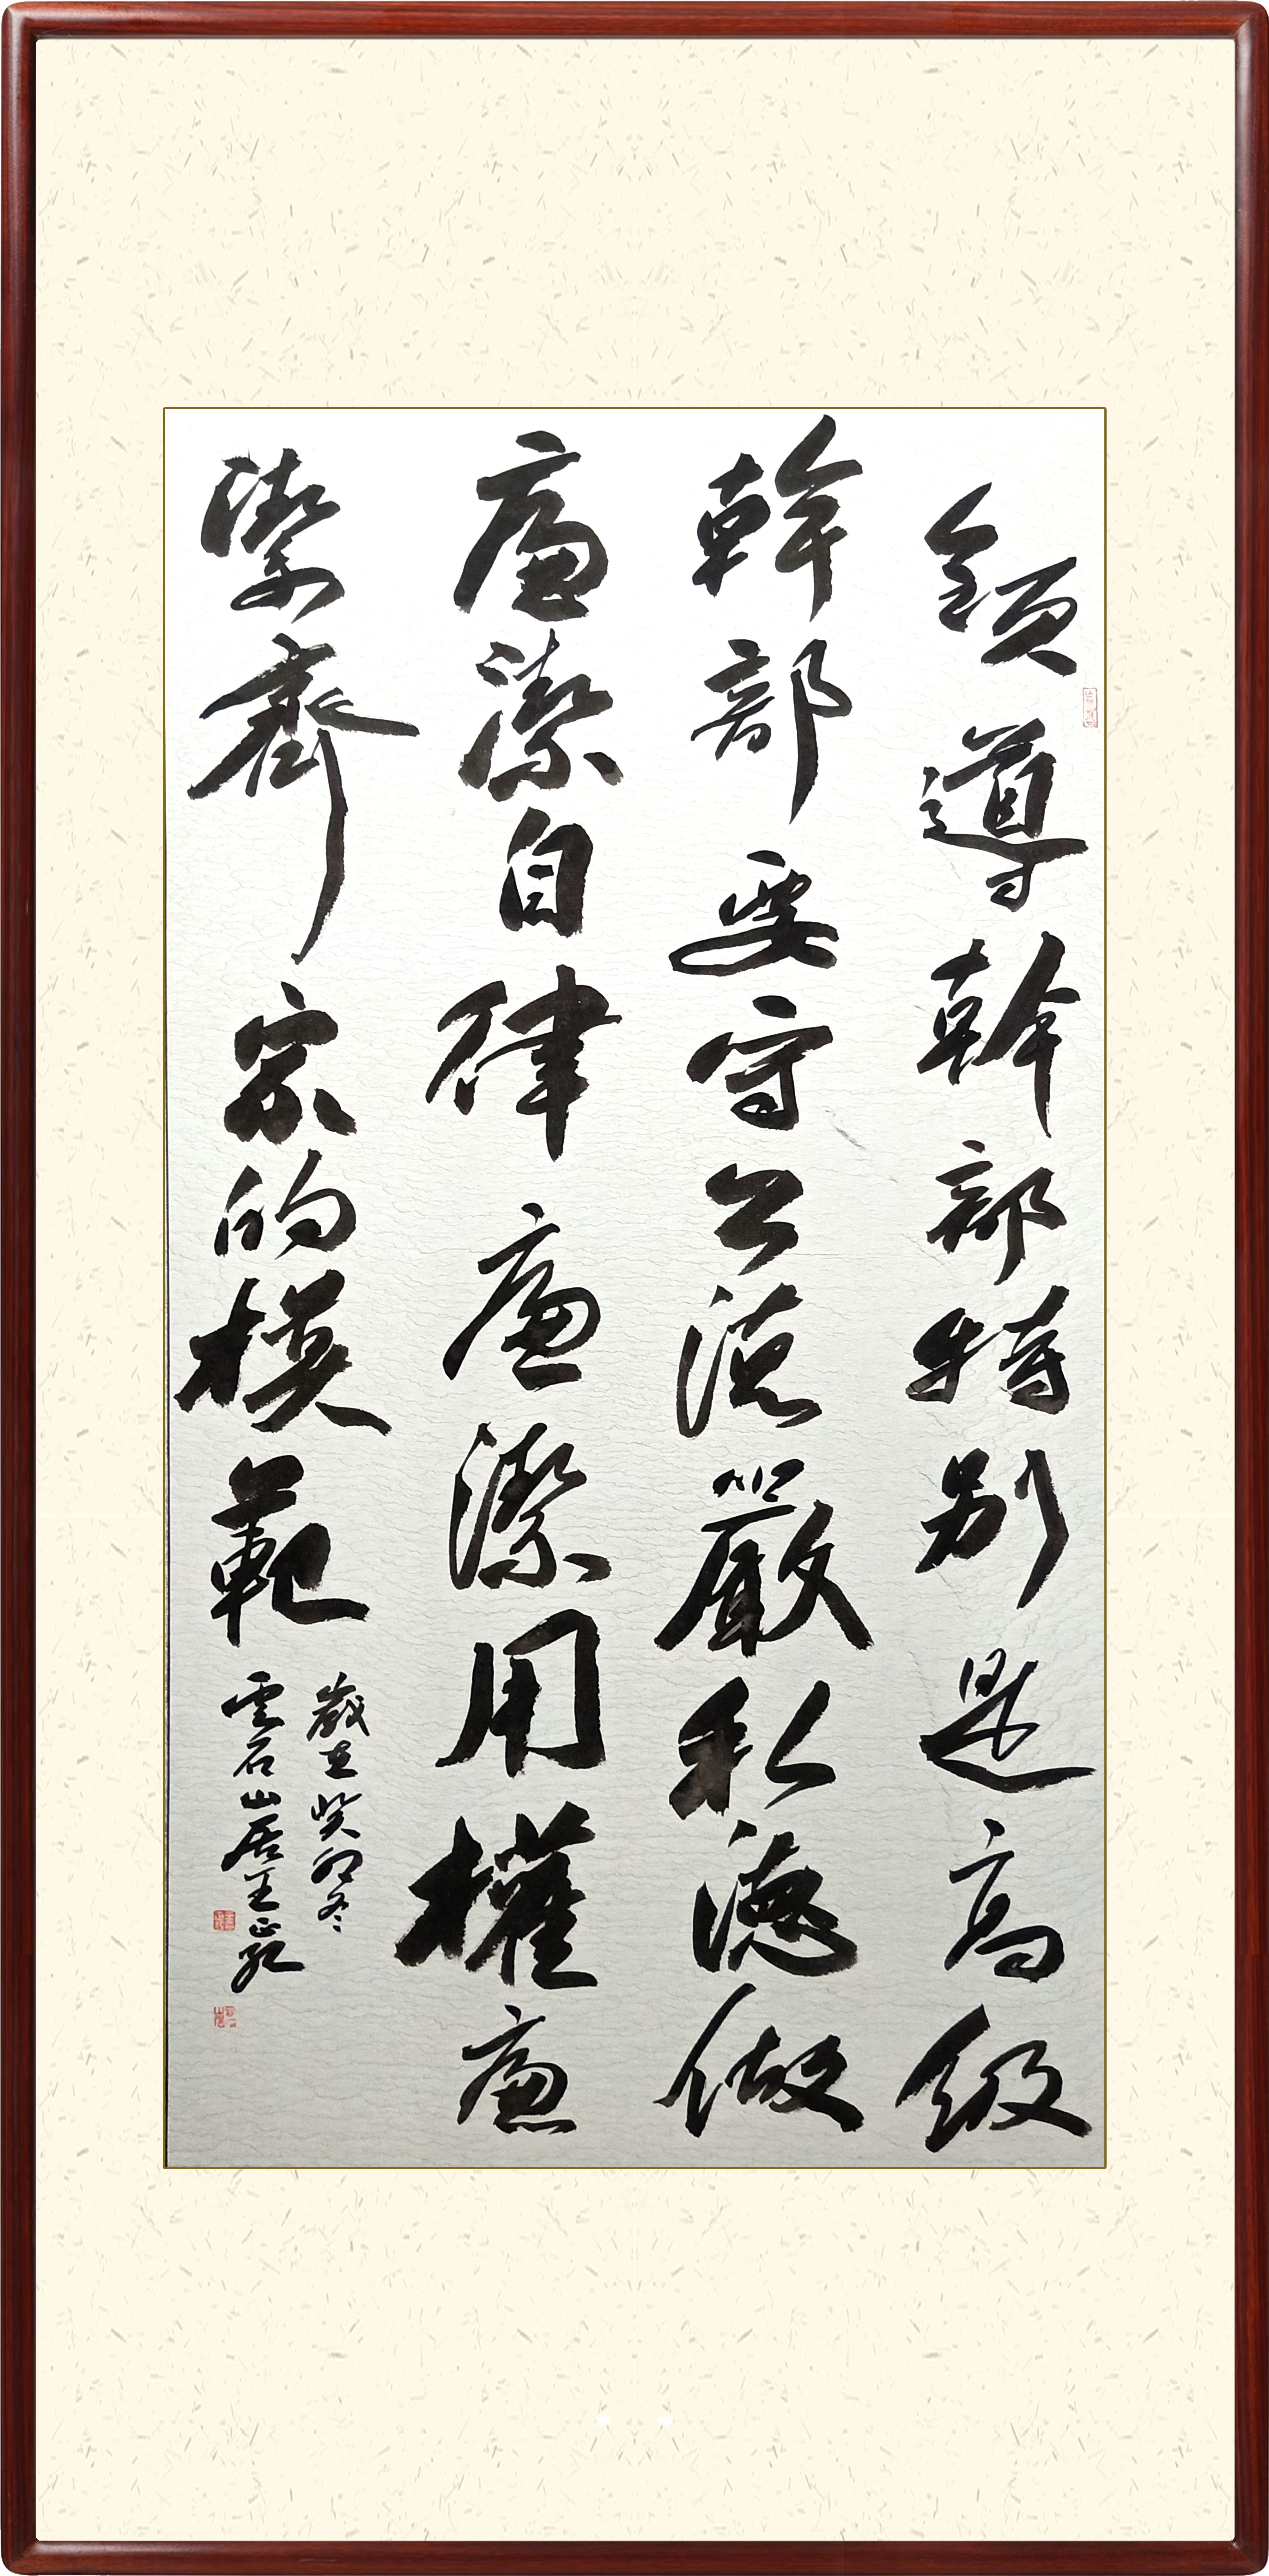 領導幹部特別是高級
幹部要守公德嚴私德做
廉潔自律廉潔用權廉
潔齊家的模範
歲在癸卯冬
雲石山居王正